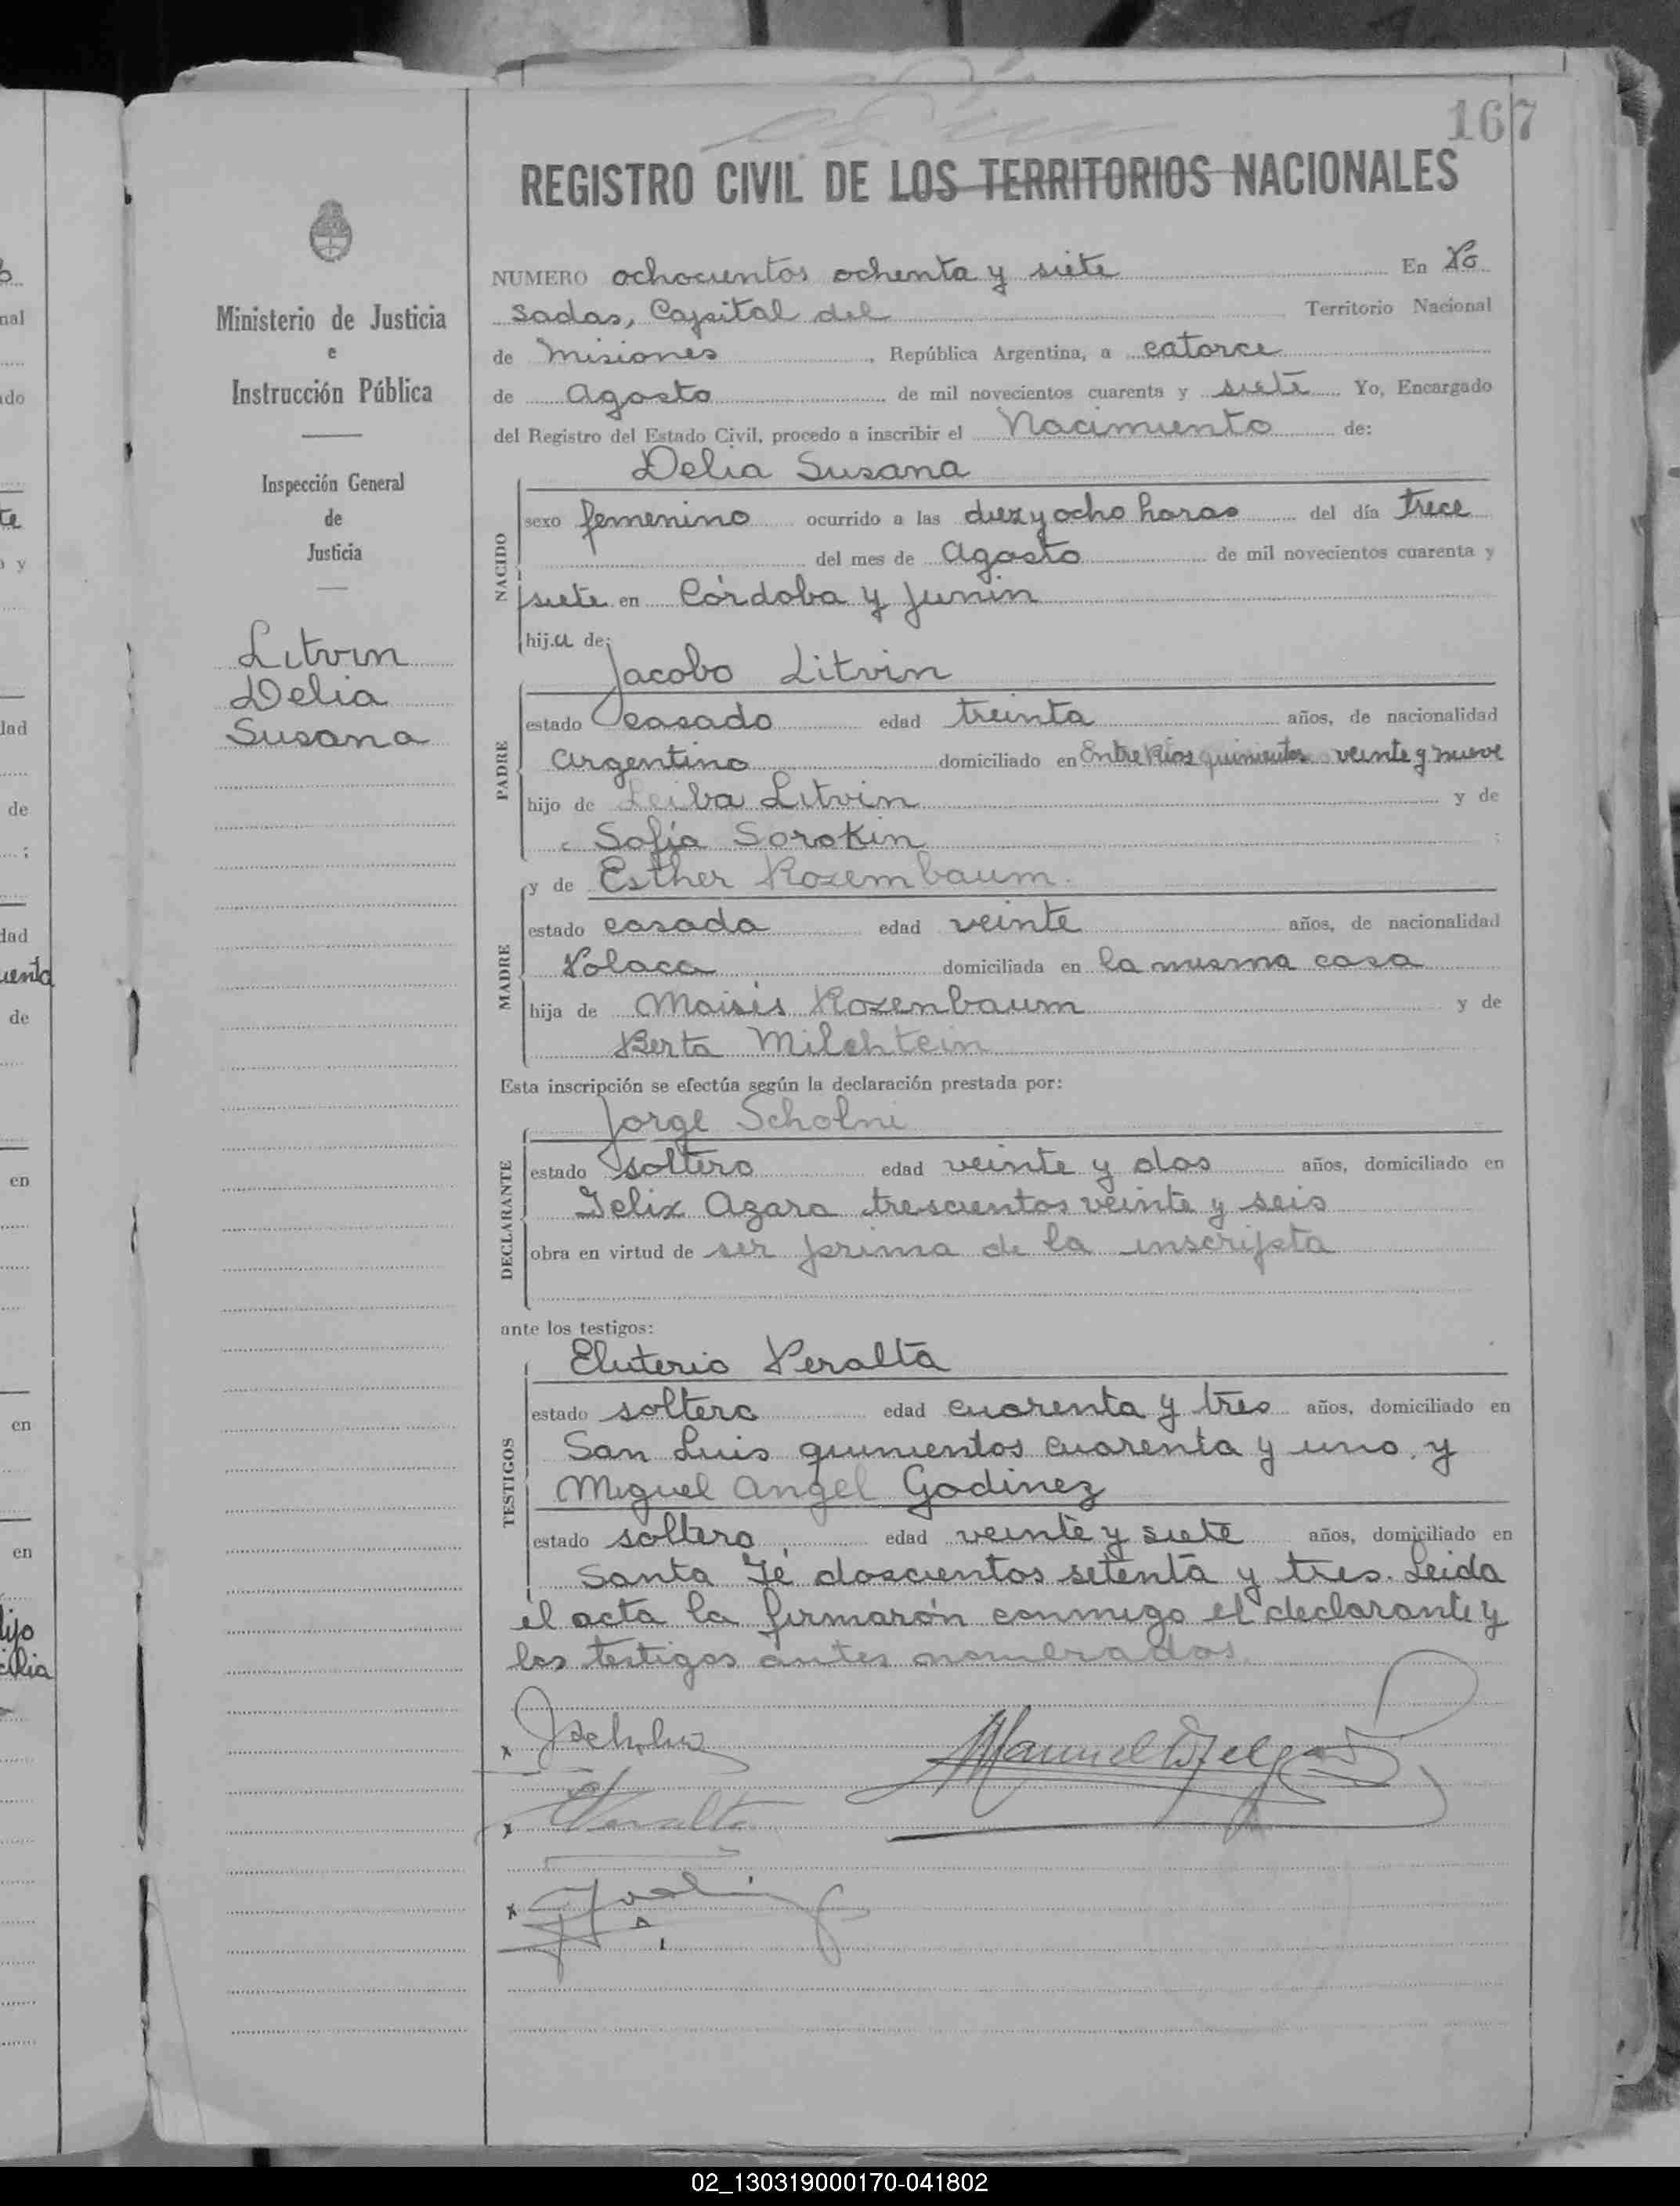 167
REGISTRO CIVIL DE LOS TERRITORIOS NACIONALES
Ministerio de Justicia
e
Instrucción Pública
Inspección General
de
Justicia
Litvin
Delia
Susana
NUMERO ochocientos ochenta y siete En Po
sadas, Capital del Territorio Nacional
de Misiones, República Argentina, a catorce
de Agosto de mil novecientos cuarenta y siete Yo, Encargado
del Registro del Estado Civil, procedo a inscribir el Nacimiento de:
Delia Susana
NACIDO
sexo femenino ocurrido a las diez y ocho horas del día trece
del mes de Agosto de mil novecientos cuarenta y
siete en Córdoba y Junin
hija de:
Jacobo Litvin
PADRE
estado casado edad treinta años, de nacionalidad
Argentino domiciliado en Entre Rios quinientos veinte y nueve
hijo de Leiba Litvin y de
Sofía Sorokin
y de Esther Rozembaum.
MADRE
estado casada edad veinte años, de nacionalidad
Polaca domiciliada en la misma casa
hija de Moisés Rozenbaum y de
Berta Milchtein
Esta inscripción se efectúa según la declaración prestada por:
Jorge Scholni
DECLARANTE
estado soltero edad veinte y dos años, domiciliado en
Felix Azara trescientos veinte y seis
obra en virtud de ser prima de la inscripta
ante los testigos:
Eluterio Peralta
TESTIGOS
estado soltero edad cuarenta y tres años, domiciliado en
San Luis quinientos cuarenta y uno, y
Miguel Angel Godinez
estado soltero edad veinte y siete años, domiciliado en
Santa Fé doscientos setenta y tres. Leida
el acta la firmarón conmigo el declarante y
los testigos antes nombrados.
Peralta
Manuel
02_130319000170-041802